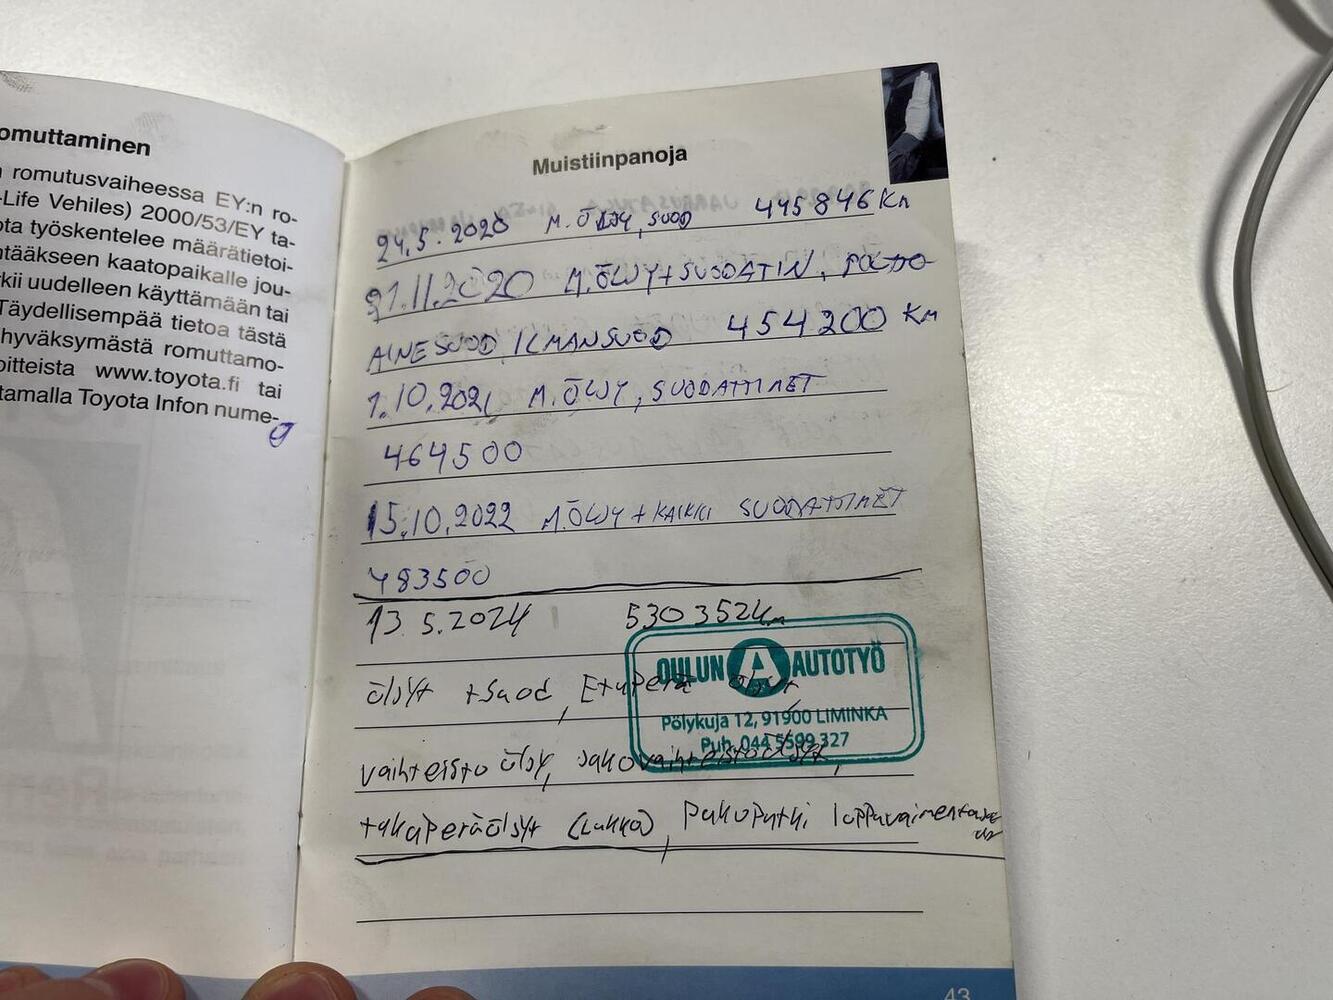 omuttaminen
romutusvaiheessa EY:n ro-
-Life Vehiles) 2000/53/EY ta-
ota työskentelee määrätietoi-
ntääkseen kaatopaikalle jou-
kii uudelleen käyttämään tai
Täydellisempää tietoa tästä
hyväksymästä romuttamo-
oitteista www.toyota.fi tai
tamalla Toyota Infon nume-
Muistiinpanoja
24.5.2020 M.ÖLJY, SUOD 445846 Km
21.11.2020 M.ÖLJY+SUODATIN, POLTO
AINESUOD, ILMANSUOD 454200 Km
1.10.2021 M.ÖLJY, SUODATTIMET
464500
15.10.2022 M.ÖLJY + KAIKKI SUODATTIMET
483500
13.5.2024 530352km
OULUN A AUTOTYÖ
öljyt + suod, Etuperä öljyt,
Pölykuja 12, 91900 LIMINKA
Puh. 044 5599 327
vaihteisto öljy, Jakovaihteistoöljyt,
takaperäöljyt (Lukko), Pakoputki loppuvaimentaja
43